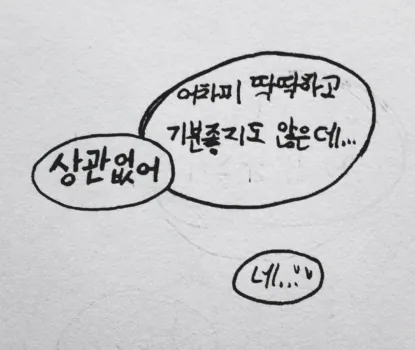 어차피 딱딱하고
기분좋지도 않은데...
상관없어
네...